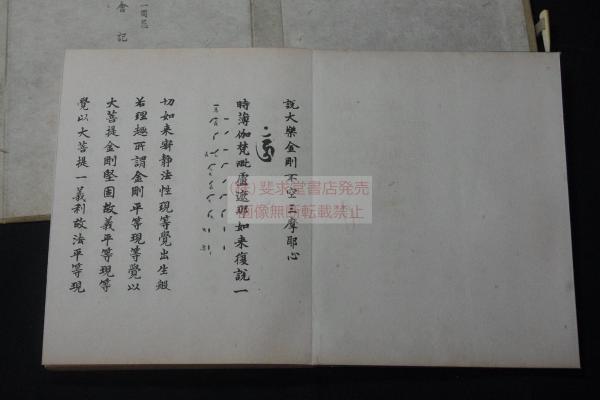 説大樂金剛不空三摩耶心
時薄伽梵毗盧遮那如来復說一
切如来寂静法性現等覺出生般
若理趣所謂金剛平等現等覺以
大菩提金剛堅固故義平等現等
覺以大菩提一義利故法平等現
會記
(株)斐求堂書店発売
画像無断転載禁止